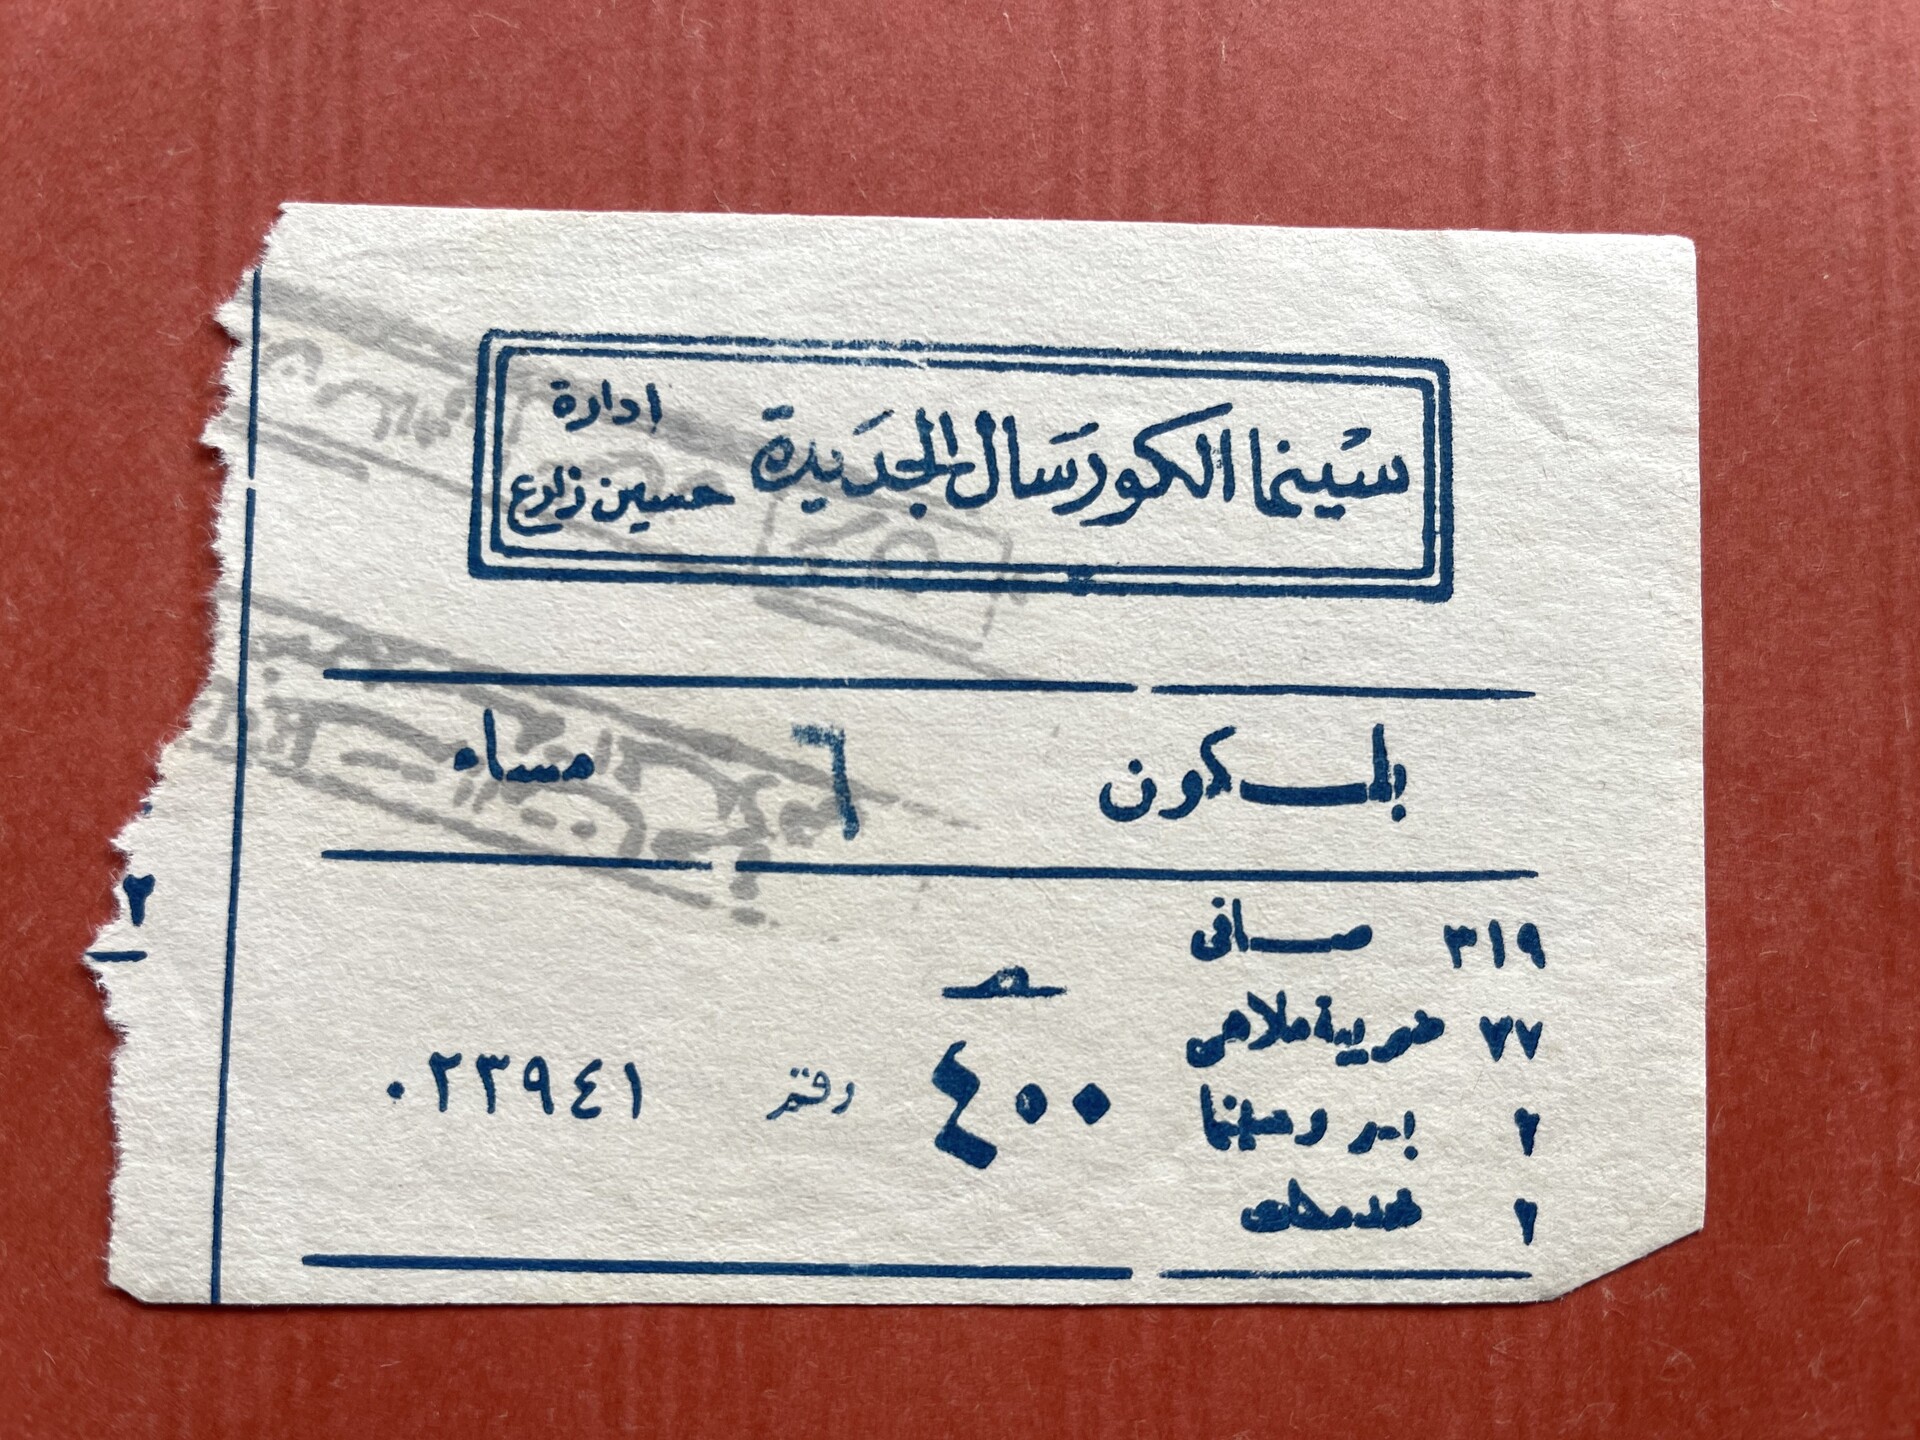 سينما الكورسال الجديدة
ادارة
حسين زارع
بلكون ٦ مساء
٣١٩ صافى
٧٧ ضريبة ملاهى
٢ بر وسينما
٢
مـ
٤٠٠
رقم ٠٢٣٩٤١
٢